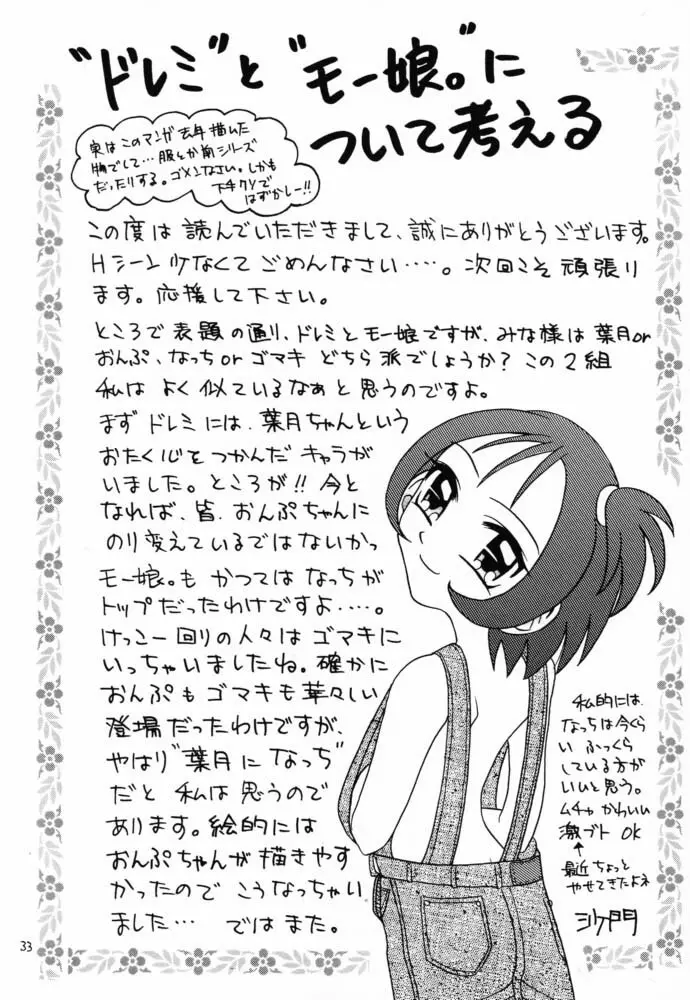 "ドレミ"と"モー娘。"に
ついて考える
実はこのマンガ去年描いた
物でして…服とか前シリーズ
だったりする。ゴメンなさい。しかも
下手クソで
はずかしー!!
この度は読んでいただきまして、誠にありがとうございます。
Hシーン少なくてごめんなさい……。次回こそ頑張り
ます。応援して下さい。
ところで表題の通り、ドレミとモー娘ですが、みな様は葉月or
おんぷ、なっちorゴマキ どちら派でしょうか?この2組
私はよく似ているなぁと思うのですよ。
まずドレミには、葉月ちゃんという
おたく心をつかんだキャラが
いました。ところが!!今と
なれば、皆、おんぷちゃんに
のり変えているではないかっ
モー娘。もかつてはなっちが
トップだったわけですよ……。
けっこー回りの人々はゴマキに
いっちゃいましたね。確かに
おんぷもゴマキも華々しい
登場だったわけですが、
やはり"葉月になっち"
だと私は思うので
あります。絵的には
おんぷちゃんが描きやす
かったのでこうなっちゃい
ました… ではまた。
私的には、
なっちは今くら
いふっくら
している方が
いいと思う。
ムチャかわいい
激ブト OK
↑
最近ちょっと
やせてきたよネ
沙門
33